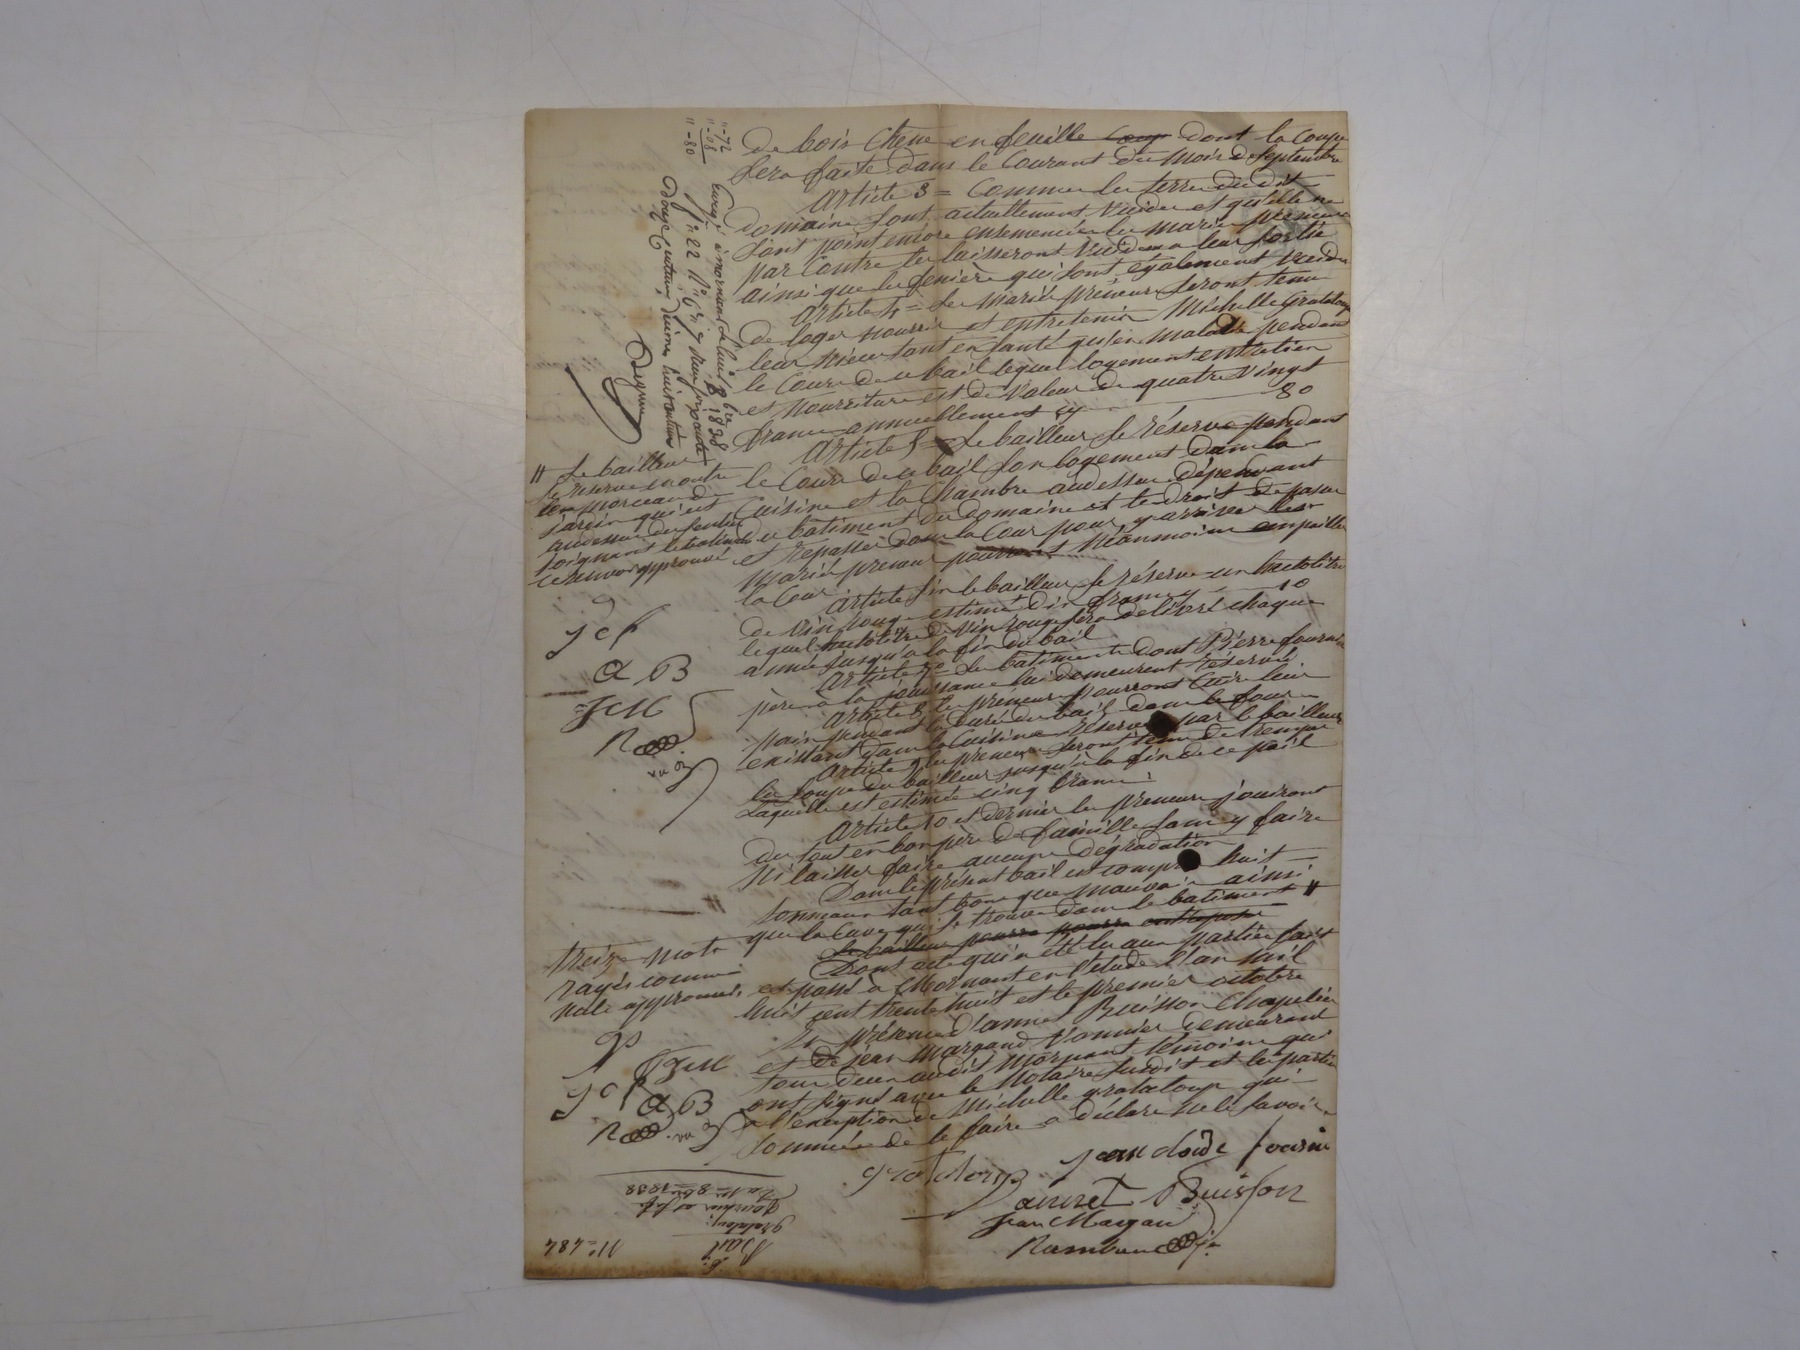 de bois Chêne en feuille Coup dont la Coupe
sera faite dans le Courant du mois de Septembre
Article 3 = Comme les terres du dit
domaine sont actuellement vuides et qu'elle ne
sont point encore ensemencées les mariés preneurs
par Contre les laisseront vuides a leur sortie
ainsi que les fenière qui sont également vuides
Article 4 = les mariés preneurs seront tenu
de loger nourrir et entretenir Michelle Grataloup
leur nièce tant en santé qu'en maladie pendant
le Cours de ce bail lequel logement entretien
et nourriture est de valeur de quatre vingt
francs annuellement cy 80
Article 5 = Le bailleur se réserve pendant
le Cours de ce bail son logement dans la
Cuisine et la Chambre audessus dépendant
du batiment du domaine et le droit de passer
et repasser dans la Cour pour y arriver les
mariés preneurs pourront néanmoins empailler
la Cour
Article six le bailleur se réserve un hectolitre
de vin rouge estimé dix francs cy 10
lequel hectolitre de vin rouge sera délivré chaque
année jusqu'à la fin du bail
Article 7e = Les batiments dont Pierre fournier
père a la jouissance lui demeurent réservé
Article 8 les preneurs pourront Cuire leur
pain pendant la durée du bail dans le four
existant dans la Cuisine réservée par le bailleur
Article 9 les preneurs seront tenu de tremper
la soupe du bailleur jusqu'à la fin de ce bail
Laquelle est estimée cinq francs
Article 10 et dernier les preneurs jouiront
du tout en bon père de famille sans y faire
ni laisser faire aucune dégradation
Dans le présent bail est compris huit
tonneaux tant bons que mauvais ainsi
que la Cuve qui se trouve dans le batiment //
Le bailleur pourra pourra entreposer
Dont acte qui a été lu aux parties fait
et passé à Mornant en l'étude l'an mil
huit cent trente huit et le premier octobre
En présence d'annet Buisson Chapelier
et de jean Margand vannier demeurant
tous deux audit Mornant témoins qui
ont signé avec le Notaire susdit et les parties
a l'exception de Michelle grataloup qui
sommée de le faire a déclaré ne le savoir
grataloup jean cloude fournie
annet Buisson
Jean Margan
"-72
"-08
"-80
à mornant le huit 8bre 1838
fo 22
douze centimes décimes huit centimes
// Le bailleur
se réserve en outre
un morceau de
jardin qui est
audessus du sentier
joignant le batiment
ce renvoi approuvé
jcf
a B
JM
treize mots
rayés comme
nuls approuvés
G
JM
jcf a B
Bail
grataloup
fournier
du 1er 8bre 1838
No=484